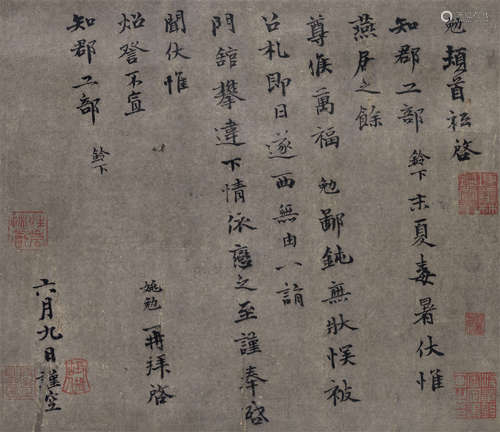 勉頓首拜啓
知郡工部鈴下末夏毒暑伏惟
燕居之餘
尊候萬福勉鄙鈍無狀悮被
召札即日遂西無由一詣
門舘攀違下情依戀之至謹奉啓
聞伏惟
炤詧不宣
施勉再拜啓
知郡工部鈴下
六月九日謹空